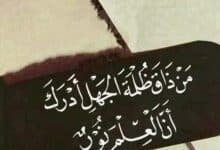 مَنْ ذَاقَ ظُلْمَةَ الجَهْلِ أَدْرَكَ
أَنَّ العِلْمَ نُورٌ